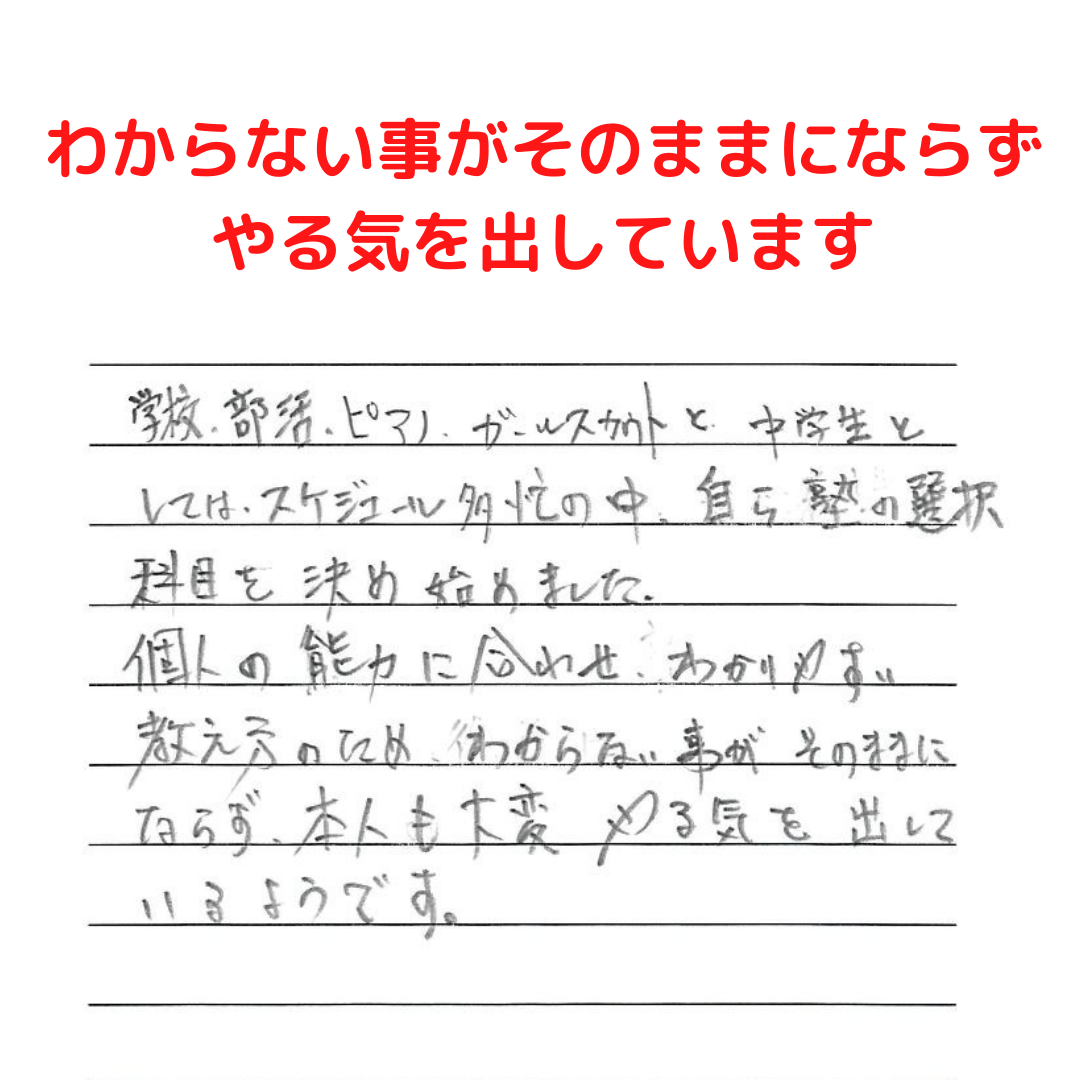 わからない事がそのままにならず
やる気を出しています
学校、部活、ピアノ、ガールスカウトと、中学生と
しては、スケジュール多忙の中、自ら塾の選択
科目を決め始めました。
個人の能力に合わせ、わかりやすい
教え方のため、わからない事がそのままに
ならず、本人も大変やる気を出して
いるようです。